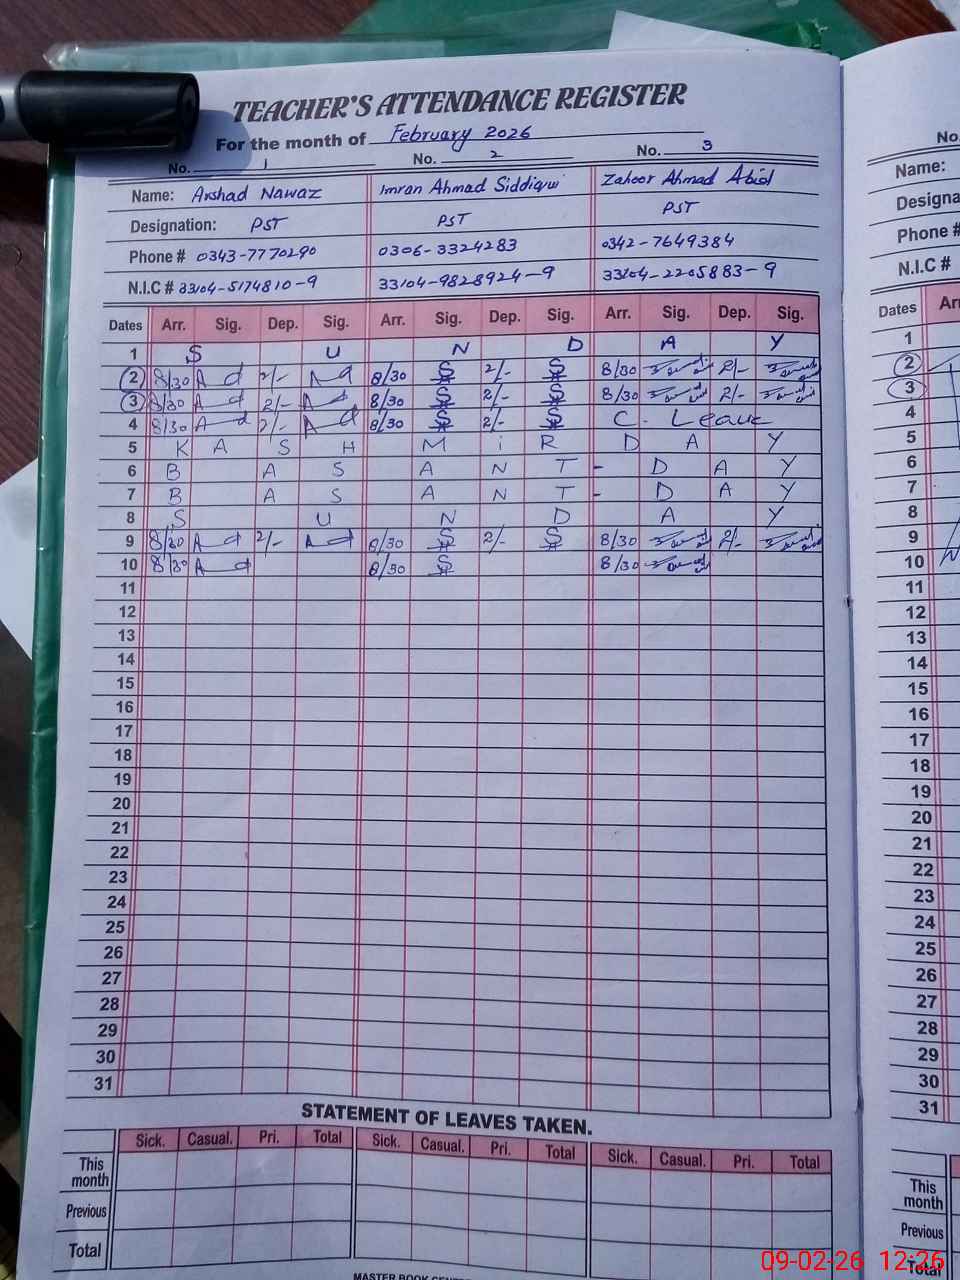 TEACHER'S ATTENDANCE REGISTER
For the month of February 2026
No. 1 No. 2 No. 3
Name: Arshad Nawaz Imran Ahmad Siddiqui Zahoor Ahmad Abid
Designation: PST PST PST
Phone # 0343-7770290 0306-3324283 0342-7649384
N.I.C # 33104-5174810-9 33104-9828924-9 33104-2205883-9
Dates Arr. Sig. Dep. Sig. Arr. Sig. Dep. Sig. Arr. Sig. Dep. Sig.
1 S U N D A Y
2 8/30 2/- 8/30 2/- 8/30 2/-
3 8/30 2/- 8/30 2/- 8/30 2/-
4 8/30 2/- 8/30 2/- C. Leave
5 K A S H M i R D A Y
6 B A S A N T - D A Y
7 B A S A N T - D A Y
8 S U N D A Y
9 8/30 2/- 8/30 2/- 8/30 2/-
10 8/30 8/30 8/30
11
12
13
14
15
16
17
18
19
20
21
22
23
24
25
26
27
28
29
30
31
STATEMENT OF LEAVES TAKEN.
Sick. Casual. Pri. Total Sick. Casual. Pri. Total Sick. Casual. Pri. Total
This month
Previous
Total
No.
Name:
Phone #
N.I.C #
Dates
1
2
3
4
5
6
7
8
9
10
11
12
13
14
15
16
17
18
19
20
21
22
23
24
25
26
27
28
29
30
31
This month
Previous
Total
09-02-26 12:26